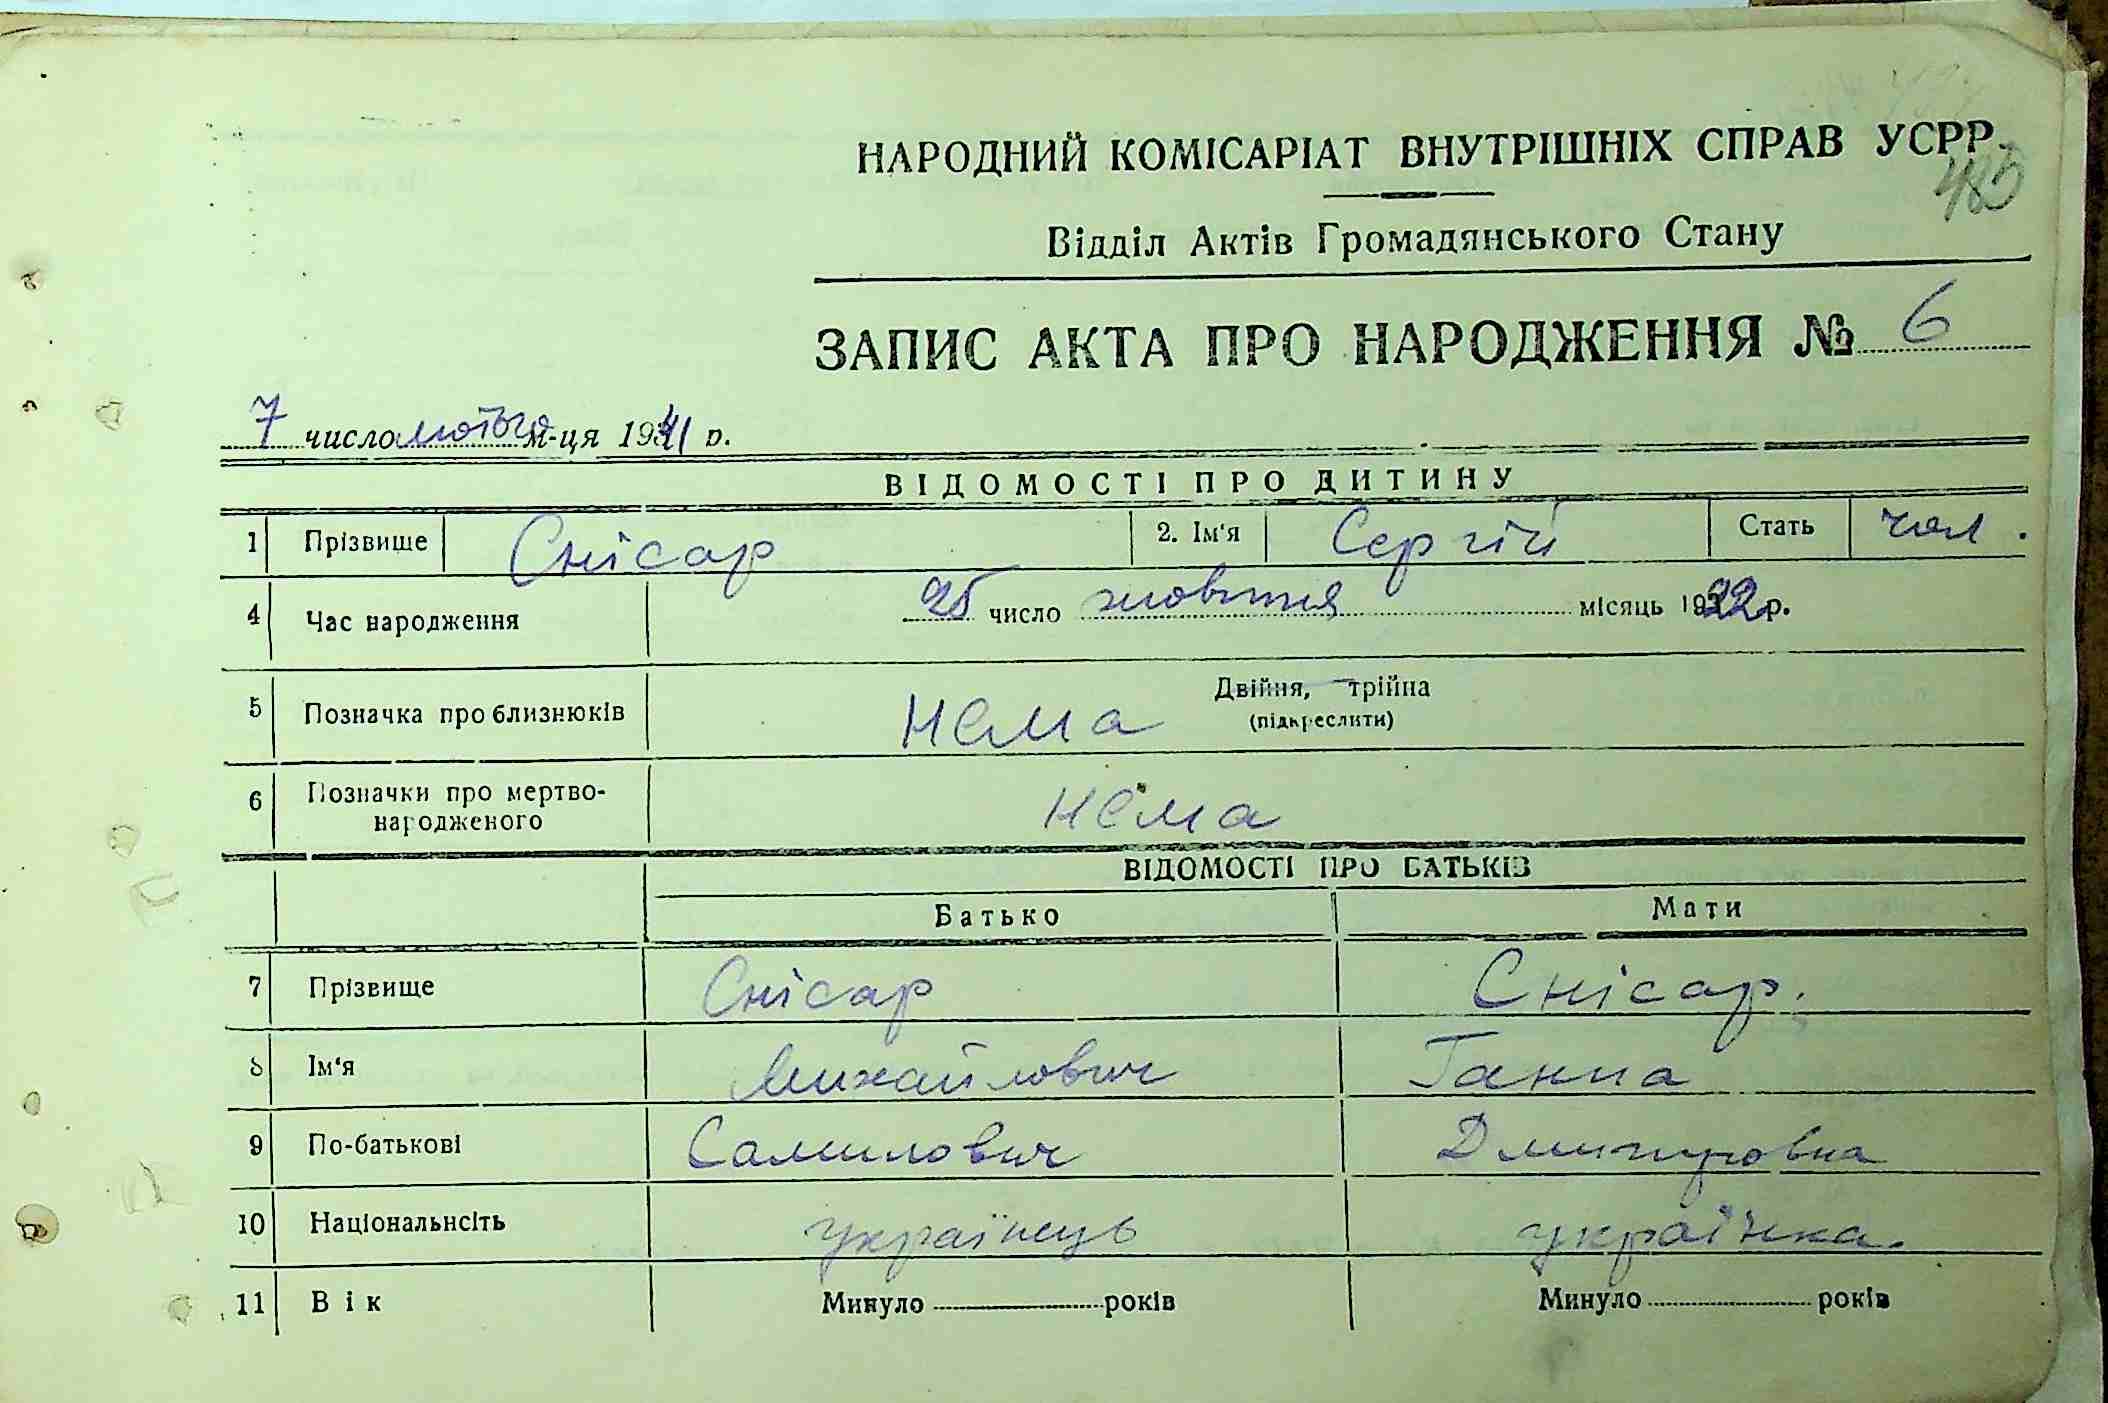 НАРОДНИЙ КОМІСАРІАТ ВНУТРІШНІХ СПРАВ УСРР.
485
Відділ Актів Громадянського Стану
ЗАПИС АКТА ПРО НАРОДЖЕННЯ № 6
7 число лютого м-ця 1941 р.
ВІДОМОСТІ ПРО ДИТИНУ
1 Прізвище Снісар 2. Ім'я Сергій Стать чол.
4 Час народження 25 число жовтня місяць 1922 р.
5 Позначка про близнюків нема Двійня, трійна
(підкреслити)
6 Позначки про мертво-
народженого нема
ВІДОМОСТІ ПРО БАТЬКІВ
Батько Мати
7 Прізвище Снісар Снісар.
8 Ім'я Михайлович Ганна
9 По-батькові Самилович Дмитровна
10 Національнсіть українець українка.
11 Вік Минуло років Минуло років